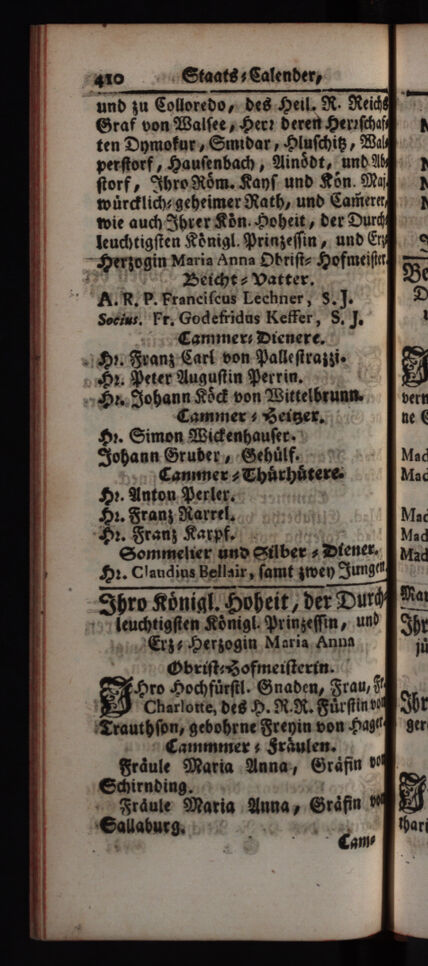 410 Staats-Calender,
und zu Colloredo, des Heil. R. Reichs
Graf von Walsee, Herr deren Herrschaf-
ten Dymokur, Smidar, Hluschitz, Wal-
perstorf, Hausenbach, Ainödt, und Ab-
storf, Ihro Röm. Kays und Kön. Maj.
würcklich-geheimer Rath, und Cam̃erer,
wie auch Ihrer Kön. Hoheit, der Durch-
leuchtigsten Königl. Prinzessin, und Erz-
Herzogin Maria Anna Obrist-Hofmeister.
Beicht-Vatter.
A. R. P. Franciscus Lechner, S. J.
Socius. Fr. Godefridus Keffer, S. J.
Cammer-Dienere.
Hr. Franz Carl von Pallestrazzi.
Hr. Peter Augustin Perrin.
Hr. Johann Köck von Wittelbrunn.
Cammer-Heitzer.
Hr. Simon Wickenhauser.
Johann Gruber, Gehülf.
Cammer-Thürhütere.
Hr. Anton Perler.
Hr. Franz Rarrel.
Hr. Franz Karpf.
Sommelier und Silber-Diener.
Hr. Claudius Bellair, samt zwey Jungen.
Ihro Königl. Hoheit, der Durch-
leuchtigsten Königl. Prinzessin, und
Erz-Herzogin Maria Anna
Obrist-Hofmeisterin.
IHro Hochfürstl. Gnaden, Frau, Fr.
Charlotte, des H. R. R. Fürstin von
Trauthson, gebohrne Freyin von Hager.
Cammmer-Fräulen.
Fräule Maria Anna, Gräfin von
Schirnding.
Fräule Maria Anna, Gräfin von
Sallaburg.
Cam-